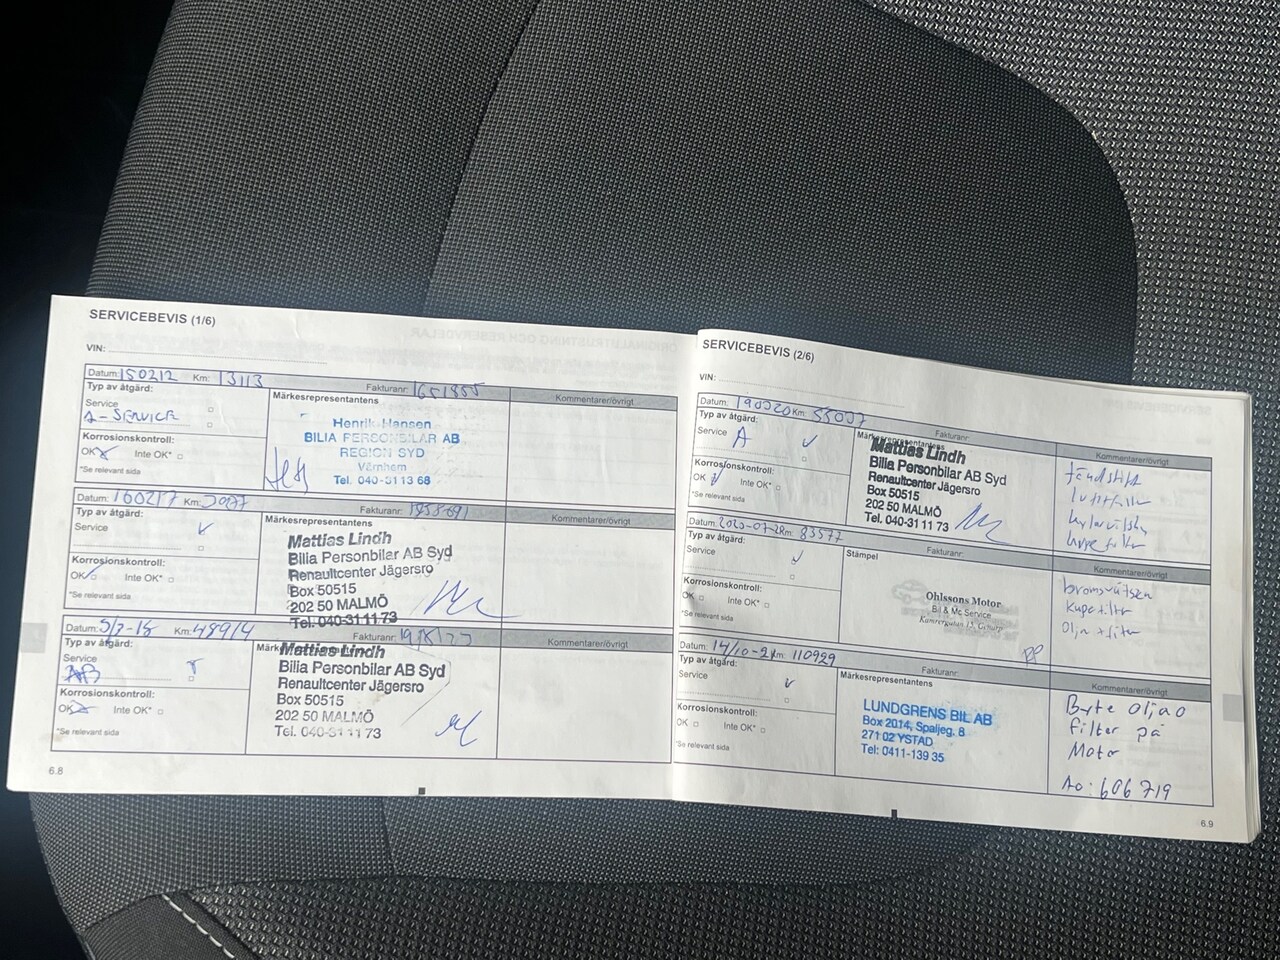 SERVICEBEVIS (1/6)
VIN:
Datum: 150212 Km: 13113 Fakturanr: 1651855
Typ av åtgärd:
Märkesrepresentantens
Kommentarer/övrigt
Service
A-SERVICE
Korrosionskontroll:
OK Inte OK*
*Se relevant sida
Henrik Hansen
BILIA PERSONBILAR AB
REGION SYD
Värnhem
Tel. 040-31 13 68
Datum: 160217 Km: Fakturanr:
Typ av åtgärd:
Märkesrepresentantens
Kommentarer/övrigt
Service
Korrosionskontroll:
OK Inte OK*
*Se relevant sida
Mattias Lindh
Bilia Personbilar AB Syd
Renaultcenter Jägersro
Box 50515
202 50 MALMÖ
Tel. 040-31 11 73
Datum: Km: 48914 Fakturanr:
Typ av åtgärd:
Kommentarer/övrigt
Service
AB
Korrosionskontroll:
OK Inte OK*
*Se relevant sida
Mattias Lindh
Bilia Personbilar AB Syd
Renaultcenter Jägersro
Box 50515
202 50 MALMÖ
Tel. 040-31 11 73
6.8
SERVICEBEVIS (2/6)
VIN:
Datum: Km: Fakturanr:
Typ av åtgärd:
Märkesrepresentantens
Kommentarer/övrigt
Service A
Korrosionskontroll:
OK Inte OK*
*Se relevant sida
Mattias Lindh
Bilia Personbilar AB Syd
Renaultcenter Jägersro
Box 50515
202 50 MALMÖ
Tel. 040-31 11 73
tändstift
luftfilter
Datum: Km: 83577 Fakturanr:
Typ av åtgärd:
Stämpel
Kommentarer/övrigt
Service
Korrosionskontroll:
OK Inte OK*
*Se relevant sida
Ohlssons Motor
Bil & Mc Service
bromsvätsen
kupefilter
Olja + filter
Datum: 14/10-21 Km: 110929 Fakturanr:
Typ av åtgärd:
Märkesrepresentantens
Kommentarer/övrigt
Service
Korrosionskontroll:
OK Inte OK*
*Se relevant sida
LUNDGRENS BIL AB
Box 2014, Spaljeg. 8
271 02 YSTAD
Tel: 0411-139 35
Byte olja o
filter på
Motor
Ao: 606719
6.9